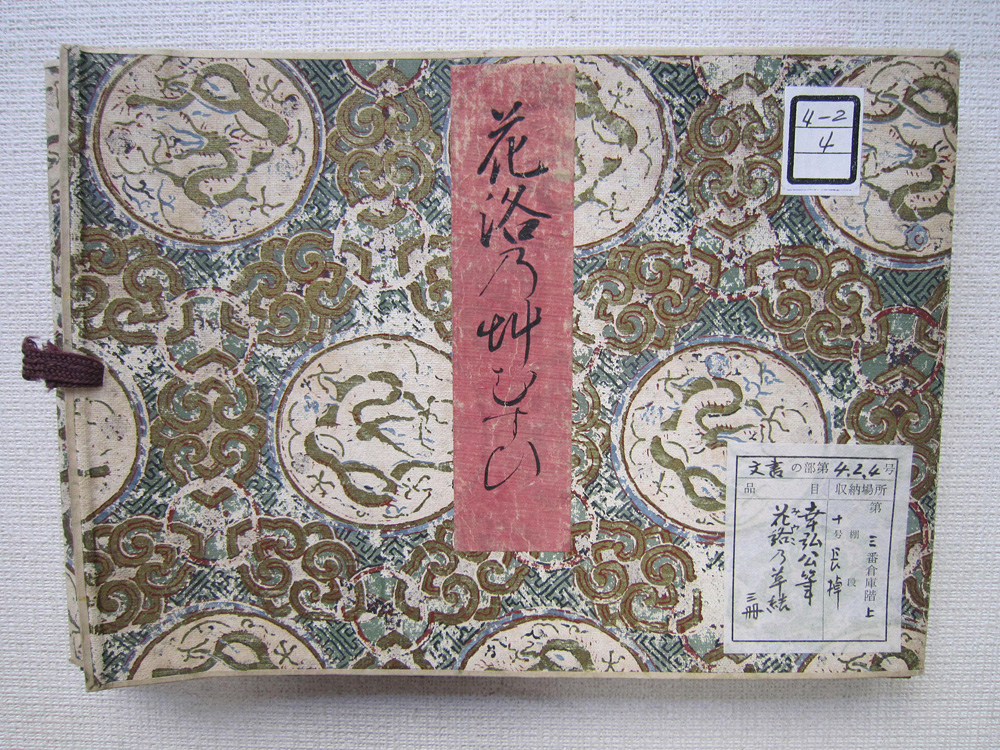 花洛乃艸むすひ
4-2
4
文書の部第4.2.4号
品目
収納場所
第三番倉庫階上
十号棚 段
長棹
幸弘公筆
花洛乃草結
みやこ
三冊